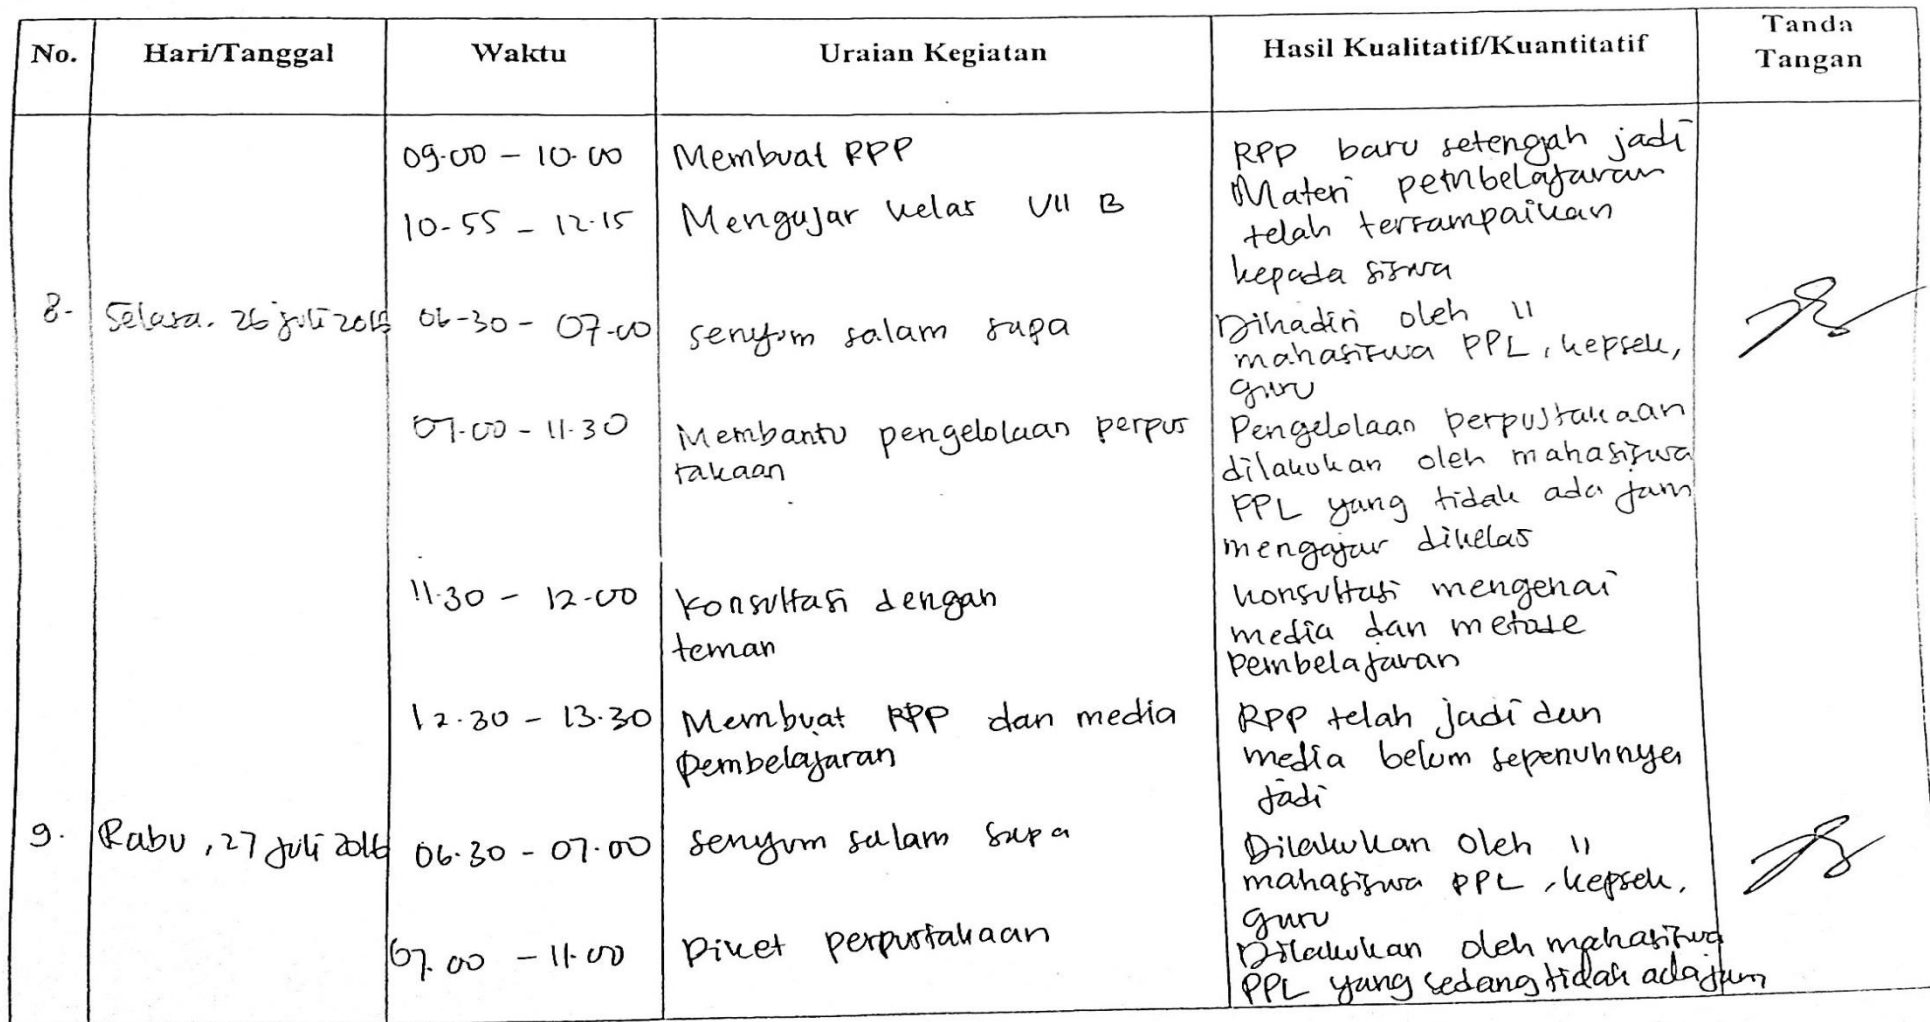 No. Hari/Tanggal Waktu Uraian Kegiatan Hasil Kualitatif/Kuantitatif Tanda
Tangan
09.00 - 10.00 Membuat RPP RPP baru setengah jadi
10-55 - 12.15 Mengajar kelas VII B Materi pembelajaran
telah tersampaikan
kepada siswa
8. Selasa, 26 juli 2016 06-30 - 07.00 senyum salam sapa Dihadiri oleh 11
mahasiswa PPL, kepsek,
guru
07.00 - 11.30 Membantu pengelolaan perpus Pengelolaan perpustakaan
takaan dilakukan oleh mahasiswa
PPL yang tidak ada jam
mengajar dikelas
11.30 - 12.00 Konsultasi dengan konsultasi mengenai
teman media dan metode
pembelajaran
12.30 - 13.30 Membuat RPP dan media RPP telah jadi dan
pembelajaran media belum sepenuhnya
jadi
9. Rabu, 27 juli 2016 06.30 - 07.00 senyum salam sapa Dilakukan oleh 11
mahasiswa PPL, kepsek,
guru
07.00 - 11.00 Piket perpustakaan Dilakukan oleh mahasiswa
PPL yang sedang tidak ada jam